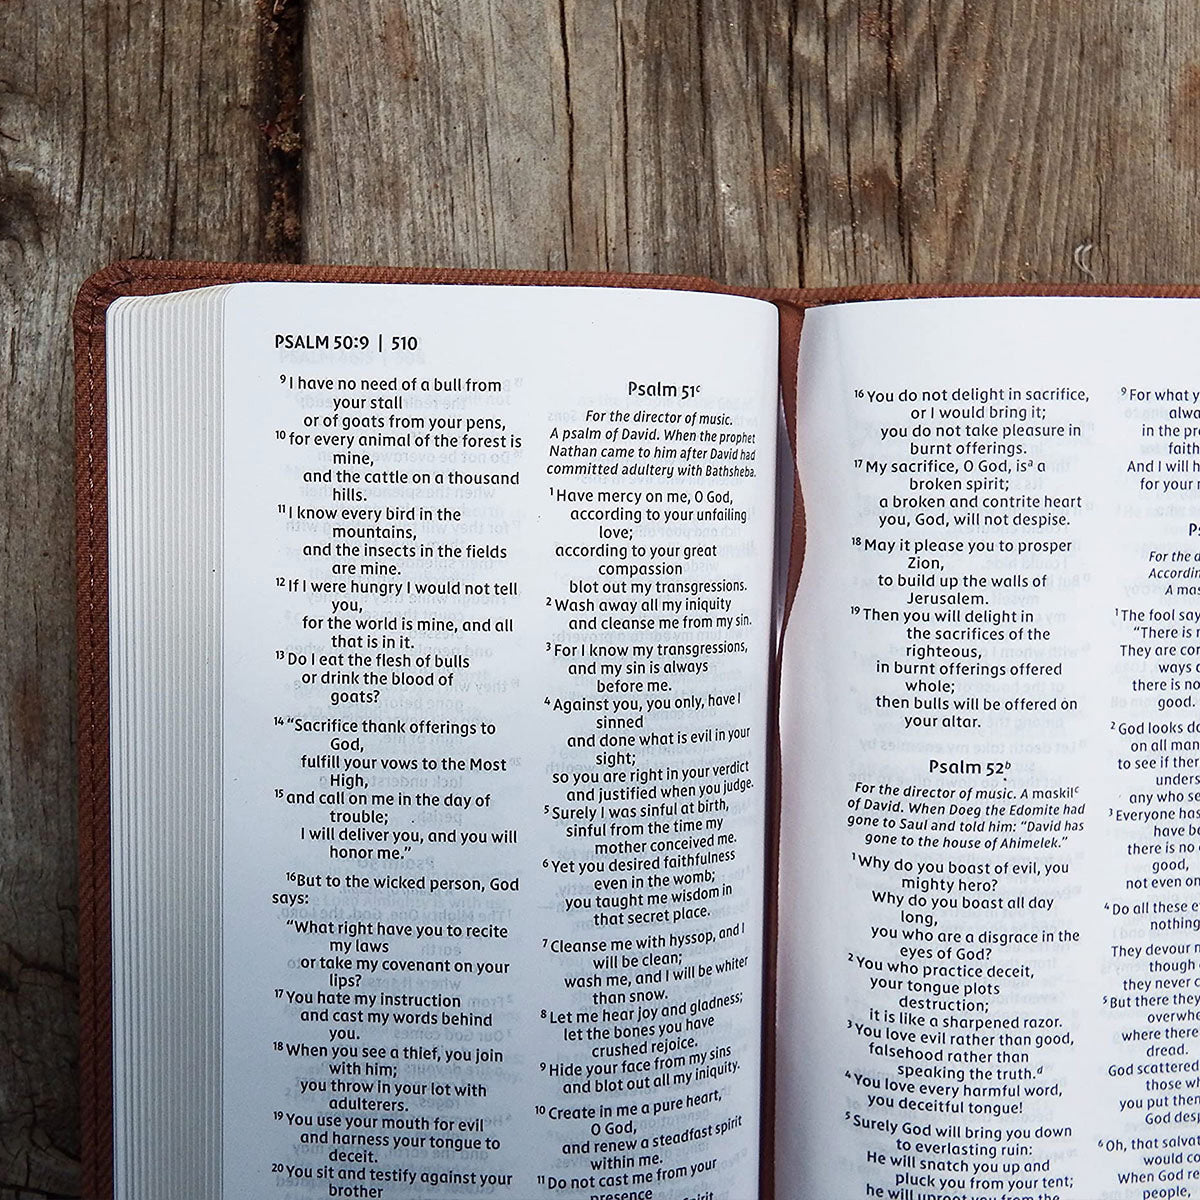 PSALM 50:9 | 510
9 I have no need of a bull from
your stall
or of goats from your pens,
10 for every animal of the forest is
mine,
and the cattle on a thousand
hills.
11 I know every bird in the
mountains,
and the insects in the fields
are mine.
12 If I were hungry I would not tell
you,
for the world is mine, and all
that is in it.
13 Do I eat the flesh of bulls
or drink the blood of
goats?
14 “Sacrifice thank offerings to
God,
fulfill your vows to the Most
High,
15 and call on me in the day of
trouble;
I will deliver you, and you will
honor me.”
16 But to the wicked person, God
says:
“What right have you to recite
my laws
or take my covenant on your
lips?
17 You hate my instruction
and cast my words behind
you.
18 When you see a thief, you join
with him;
you throw in your lot with
adulterers.
19 You use your mouth for evil
and harness your tongue to
deceit.
20 You sit and testify against your
brother
Psalm 51c
For the director of music.
A psalm of David. When the prophet
Nathan came to him after David had
committed adultery with Bathsheba.
1 Have mercy on me, O God,
according to your unfailing
love;
according to your great
compassion
blot out my transgressions.
2 Wash away all my iniquity
and cleanse me from my sin.
3 For I know my transgressions,
and my sin is always
before me.
4 Against you, you only, have I
sinned
and done what is evil in your
sight;
so you are right in your verdict
and justified when you judge.
5 Surely I was sinful at birth,
sinful from the time my
mother conceived me.
6 Yet you desired faithfulness
even in the womb;
you taught me wisdom in
that secret place.
7 Cleanse me with hyssop, and I
will be clean;
wash me, and I will be whiter
than snow.
8 Let me hear joy and gladness;
let the bones you have
crushed rejoice.
9 Hide your face from my sins
and blot out all my iniquity.
10 Create in me a pure heart,
O God,
and renew a steadfast spirit
within me.
11 Do not cast me from your
presence
Spirit
16 You do not delight in sacrifice,
or I would bring it;
you do not take pleasure in
burnt offerings.
17 My sacrifice, O God, is a a
broken spirit;
a broken and contrite heart
you, God, will not despise.
18 May it please you to prosper
Zion,
to build up the walls of
Jerusalem.
19 Then you will delight in
the sacrifices of the
righteous,
in burnt offerings offered
whole;
then bulls will be offered on
your altar.
Psalm 52b
For the director of music. A maskil c
of David. When Doeg the Edomite had
gone to Saul and told him: “David has
gone to the house of Ahimelek.”
1 Why do you boast of evil, you
mighty hero?
Why do you boast all day
long,
you who are a disgrace in the
eyes of God?
2 You who practice deceit,
your tongue plots
destruction;
it is like a sharpened razor.
3 You love evil rather than good,
falsehood rather than
speaking the truth. d
4 You love every harmful word,
you deceitful tongue!
5 Surely God will bring you down
to everlasting ruin:
He will snatch you up and
pluck you from your tent;
he will uproot you from the
9 For what y
alwa
in the pr
faith
And I will h
for your
Ps
For the d
Accordin
A mas
1 The fool say
“There is
They are cor
ways
there is no
good.
2 God looks do
on all man
to see if ther
unders
any who se
3 Everyone has
have be
there is no
good,
not even on
4 Do all these e
nothing
They devour m
though
they never c
5 But there they
overwhe
where there
dread.
God scattered
those w
you put then
God desp
6 Oh, that salvat
would co
When God re
people